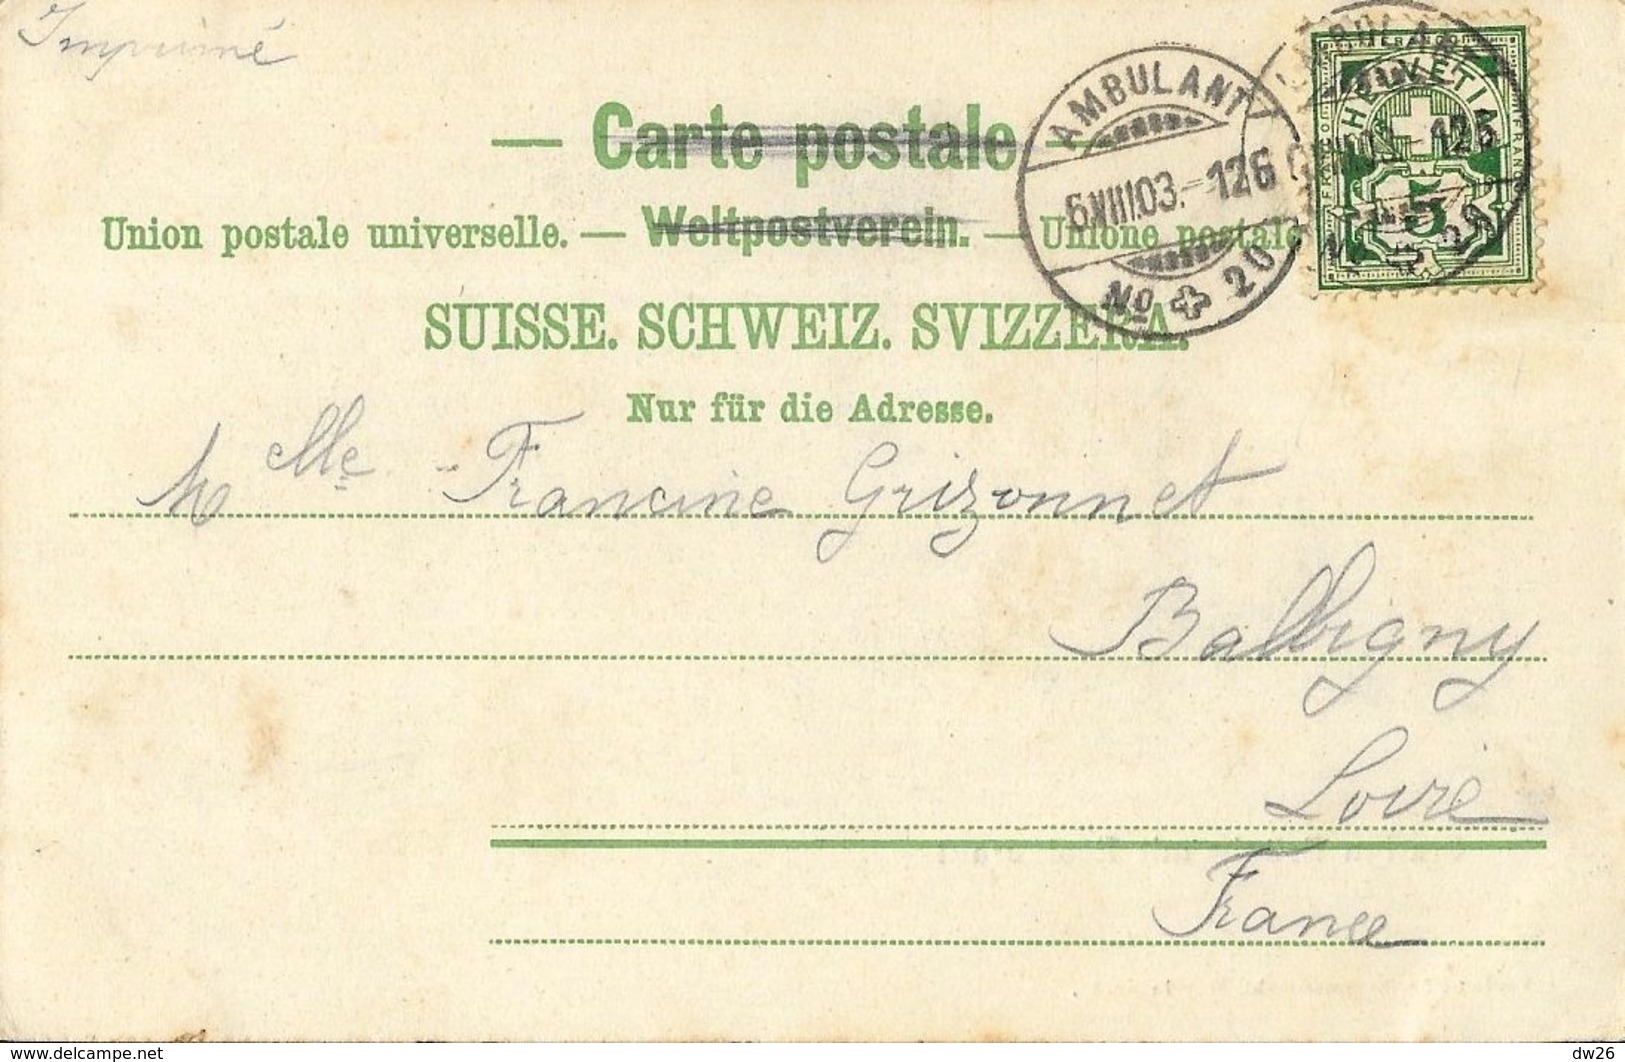 Imprimé
— Carte postale —
Union postale universelle. — Weltpostverein. — Unione postale
SUISSE. SCHWEIZ. SVIZZERA.
Nur für die Adresse.
AMBULANT
6.VIII.03.-126
No 20
HELVETIA
5
Melle Francine Grizonnet
Balbigny
Loire
France
www.delcampe.net
dw26